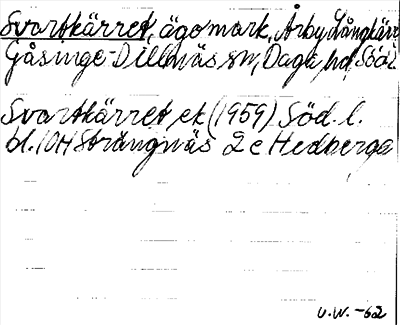 Svartkärret, ägomark, Årby, Långkärr
Gåsinge-Dillnäs sn, Daga hd, Södl
Svartkärret ek (1959) Söd. l.
bl. 10H Strängnäs 2 c Hedberga
U.W. -62